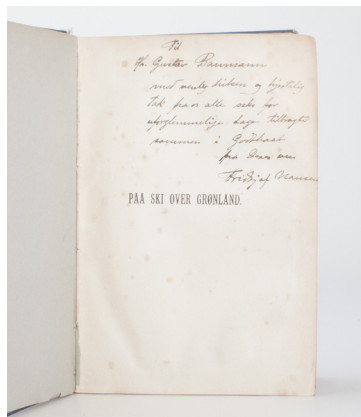 Til
Hr. Gustav Baumann
med venlig hilsen og hjertelig
tak fra os alle seks for
uforglemmelige dage tilbragte
sammen i Godthaab
fra Deres ven
Fridtjof Nansen
PAA SKI OVER GRØNLAND.